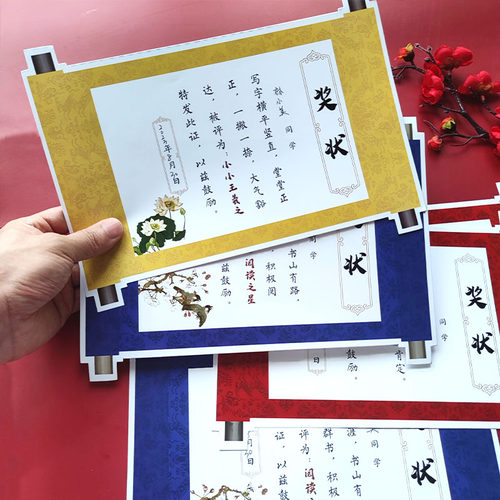 奖状
孙小美 同学
写字横平竖直，堂堂正
正，一撇一捺，大气豁
达，被评为：小小王羲之
特发此证，以兹鼓励。
2023年8月20日
状
同学
书山有路，
积极阅
阅读之星
兹鼓励。
状
同学
鼓励。
日
状
同学
涯，书山有
群书，积极
评为：阅读
证，以兹